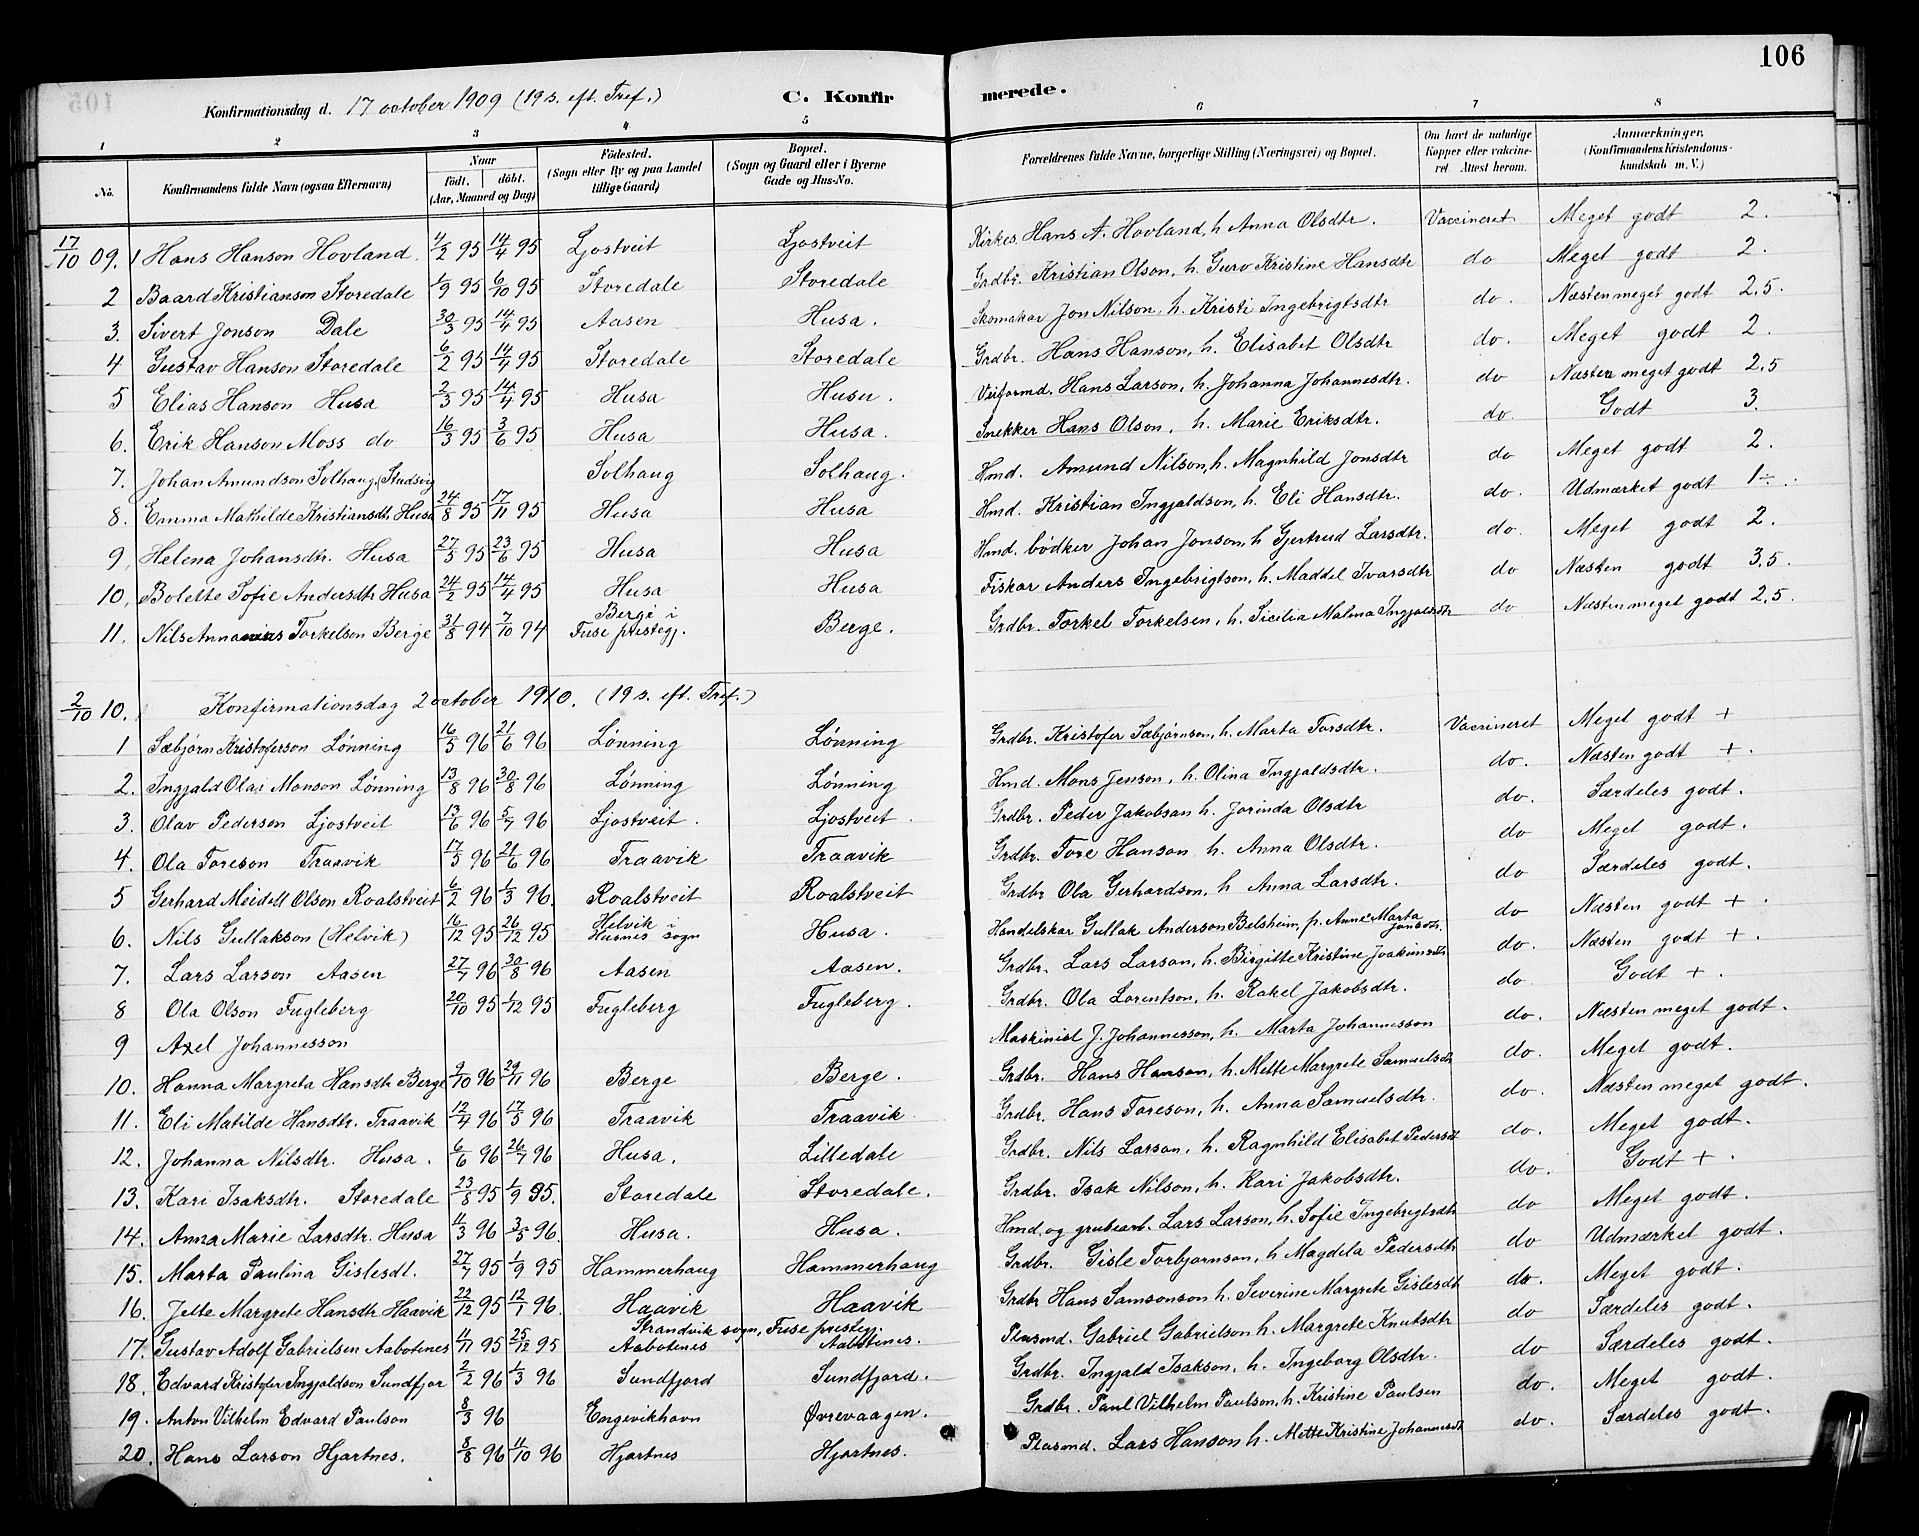 106
Konfirmationsdag d. 17 october 1909 (19 s. eft. Tref.) C. Konfir merede.
1 2 3 4 5 6 7 8
No. Konfirmandens fulde Navn (ogsaa Efternavn) Naar födt. döbt. (Aar, Maaned og Dag) Födested. (Sogn eller By og paa Landet tillige Gaard) Bopæl. (Sogn og Gaard eller i Byerne Gade og Hus-No. Forældrenes fulde Navne, borgerlige Stilling (Næringsvei) og Bopæl. Om havt de naturlige Kopper eller vakcineret Attest herom. Anmærkninger. (Konfirmandens Kristendomskundskab m. V.)
17/10 09. 1 Hans Hanson Hovland 4/2 95 14/4 95 Ljostveit Ljostveit Kirkes. Hans A. Hovland, h. Anna Olsdtr. Vaccineret Meget godt 2.
2 Baard Kristianson Storedale 1/9 95 6/10 95 Storedale Storedale Grdbr. Kristian Olson, h. Guro Kristine Hansdtr do Meget godt 2
3. Sivert Jonson Dale 30/3 95 14/4 95 Aasen Husa. Skomakar Jon Nilson, h. Kristi Ingebrigtsdtr do. Næsten meget godt 2,5.
4 Gustav Hanson Storedale 6/2 95 14/4 95 Storedale Storedale Grdbr. Hans Hanson, h. Elisabet Olsdtr do. Meget godt 2
5 Elias Hanson Husa 2/3 95 14/4 95 Husa Husa. Veiformd. Hans Larson, h. Johanna Johannesdtr. do Næsten meget godt 2,5
6. Erik Hanson Moss do 16/3 95 3/6 95 Husa Husa. Snekker Hans Olson, h. Marie Eriksdtr. do. Godt 3.
7. Johan Amundson Solhaug (Studsvig Solhaug Solhaug. Hmd. Amund Nilson, h. Magnhild Jonsdtr do Meget godt 2.
8. Emma Mathilde Kristiansdt. Husa 24/8 95 17/11 95 Husa Husa Hmd. Kristian Ingjaldson, h. Eli Hansdtr. do. Udmærket godt 1÷.
9. Helena Johansdtr. Husa 27/5 95 23/6 95 Husa Husa Hmd. bødker Johan Jonson, h Gjertrud Larsdtr. do. Meget godt 2.
10. Bolette Sofie Andersdtr Husa 24/2 95 14/4 95 Husa Husa Fiskar Anders Ingebrigtson, h. Maddel Ivarsdtr do Næsten godt 3,5
11. Nils Annanias Torkelson Berge 31/8 94 7/10 94 Berge i Fuse prestegj. Berge. Grdbr. Torkel Torkelsen, h. Sicilia Malina Ingjaldsdtr do Næsten meget godt 2,5.
2/10 10. Konfirmationsdag 2 october 1910. (19 s. eft. Tref.)
1 Sæbjørn Kristoferson Lønning 16/5 96 21/6 96 Lønning Lønning Grdbr. Kristofer Sæbjørnson, h. Marta Tonsdtr. Vaccineret Meget godt +
2. Ingjald Olai Monson Lønning 13/8 96 30/8 96 Lønning Lønning Hmd. Mons Jenson, h. Olina Ingjaldsdtr. do. Næsten godt +.
3. Olav Pederson Ljostveit 13/6 96 5/7 96 Ljostveit. Ljostveit. Grdbr. Peder Jakobsan h. Jorinda Olsdtr do. Særdeles godt.
4. Ola Toreson Traavik 17/5 96 21/6 96 Traavik Traavik Grdbr. Tore Hanson h. Anna Olsdtr. do Meget godt.
5 Gerhard Meidell Olson Roalstveit 6/2 96 1/3 96. Roalstveit Roalstveit Grdbr Ola Gerhardson, h Anna Larsdtr. do Særdeles godt.
6. Nils Gullakson (Helvik) 16/12 95 26/12 95 Helvik i Husnes sogn Husa. Handelskar Gullak Anderson Belsheim, p. Anne Marta Jonsdtr. do Næsten godt +.
7. Lars Larson Aasen 27/7 96 30/8 96 Aasen Aasen. Grdbr. Lars Larson, h. Birgitte Kristine Joakimsdtr do. Næsten godt +.
8 Ola Olson Fugleberg 20/10 95 1/12 95 Fugleberg Fugleberg. Grdbr. Ola Lorentson, h. Rakel Jakobsdtr. do. Godt +.
9 Axel Johannesson Maskinist J. Johannesson, h. Marta Johannesson do. Næsten meget godt.
10. Hanna Margreta Hansdtr Berge 9/10 96 29/11 96 Berge Berge. Grdbr. Hans Hanson, h. Mette Margrete Samuelsdtr do. Meget godt.
11. Eli Matilde Hansdtr. Traavik 12/4 96 17/5 96 Traavik Traavik. Grdbr. Hans Toreson, h. Anna Samuelsdtr. do. Næsten meget godt.
12. Johanna Nilsdtr. Husa. 6/6 96 26/7 96 Husa. Lilledale Grdbr. Nils Larson, h. Ragnhild Elisabet Pedersdt do. Meget godt.
13. Kari Isaksdtr. Storedale 23/8 95 1/9 95. Storedale Storedale. Grdbr. Isak Nilson, h. Kari Jakobsdtr. do. Godt +.
14. Anna Marie Larsdtr. Husa 11/3 96 3/5 96. Husa. Husa. Hmd. og grubearb. Lars Larson, h. Sofie Ingebrigtsdtr do Meget godt.
15. Marta Paulina Gislesdt. 27/7 95 1/9 95 Hammerhaug Hammerhaug Grdbr. Gisle Torbjørnson, h. Magdela Pedersdtr do Udmærket godt.
16. Jette Margrete Hansdtr Haavik 22/12 95 12/1 96. Haavik Haavik Grdbr Hans Samsonson h. Severine Margrete Gislesdt do. Meget godt.
17. Gustav Adolf Gabrielsen Aabotenes 11/11 95 25/12 95 Strandvik sogn, Fuse prestegj. Aabotenes Aabotenes. Plasmd. Gabriel Gabrielson h. Margrete Knutsdtr do Særdeles godt.
18. Edvard Kristofer Ingjaldson Sundfjor 2/2 96 1/3 96 Sundfjord Sundfjord. Grdbr. Ingjald Isakson, h. Ingeborg Olsdtr. do Særdeles godt.
19. Anton Vilhelm Edvard Paulson 8/3 96 Engevikhavn Øvrevaagen. Grdbr. Paul Vilhelm Paulson, h. Kristine Paulsen do. Meget godt.
20. Hans Larson Hjartnes. 8/8 96 11/10 96 Hjartnes Hjartnes. Plasmd. Lars Hanson h. Mette Kristine Johannesdt do. Særdeles godt.